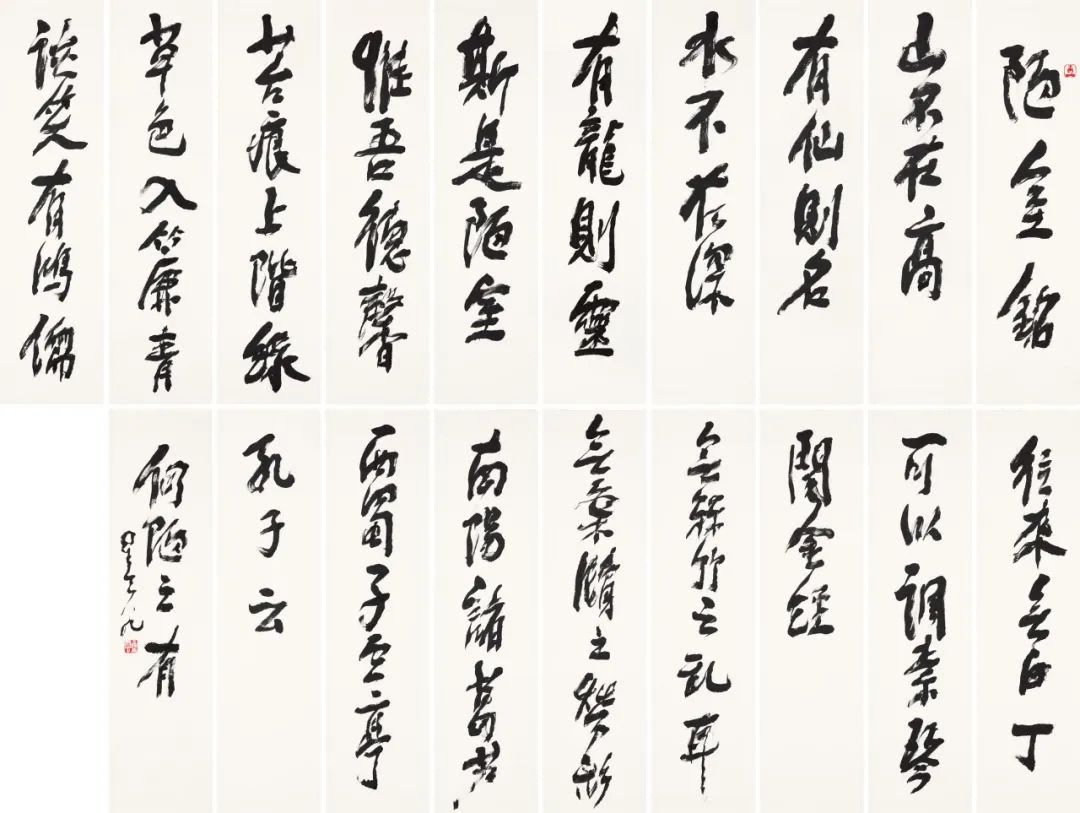 陋室銘
山不在高
有仙則名
水不在深
有龍則靈
斯是陋室
惟吾德馨
苔痕上階綠
草色入簾青
談笑有鴻儒
往來無白丁
可以調素琴
閱金經
無絲竹之乱耳
無案牘之勞形
南陽諸葛廬
西蜀子雲亭
孔子云
何陋之有